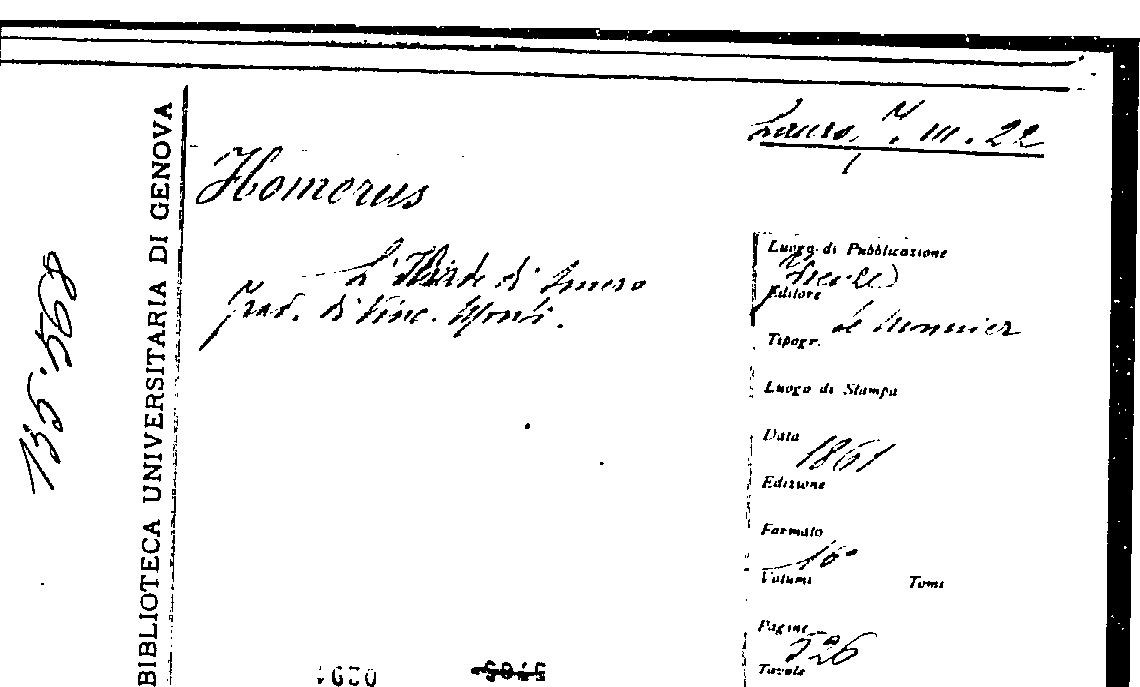 BIBLIOTECA UNIVERSITARIA DI GENOVA
135.568
Lauro, V. III. 22
Homerus
L'Iliade di Omero
Trad. di Vinc. Monti.
Luogo di Pubblicazione
Editore
Le Monnier
Tipogr.
Luogo di Stampa
Data
1861
Edizione
Formato
16°
Volumi Tomi
Pagine
526
Tavole